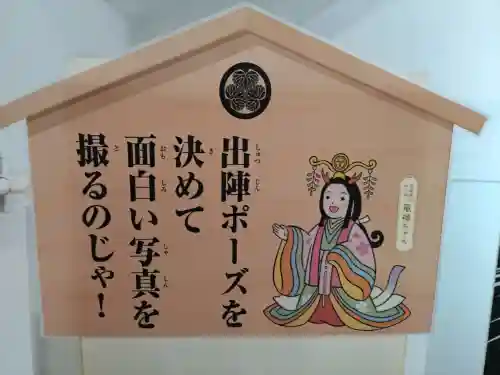 出陣ポーズを
決めて
面白い写真を
撮るのじゃ!